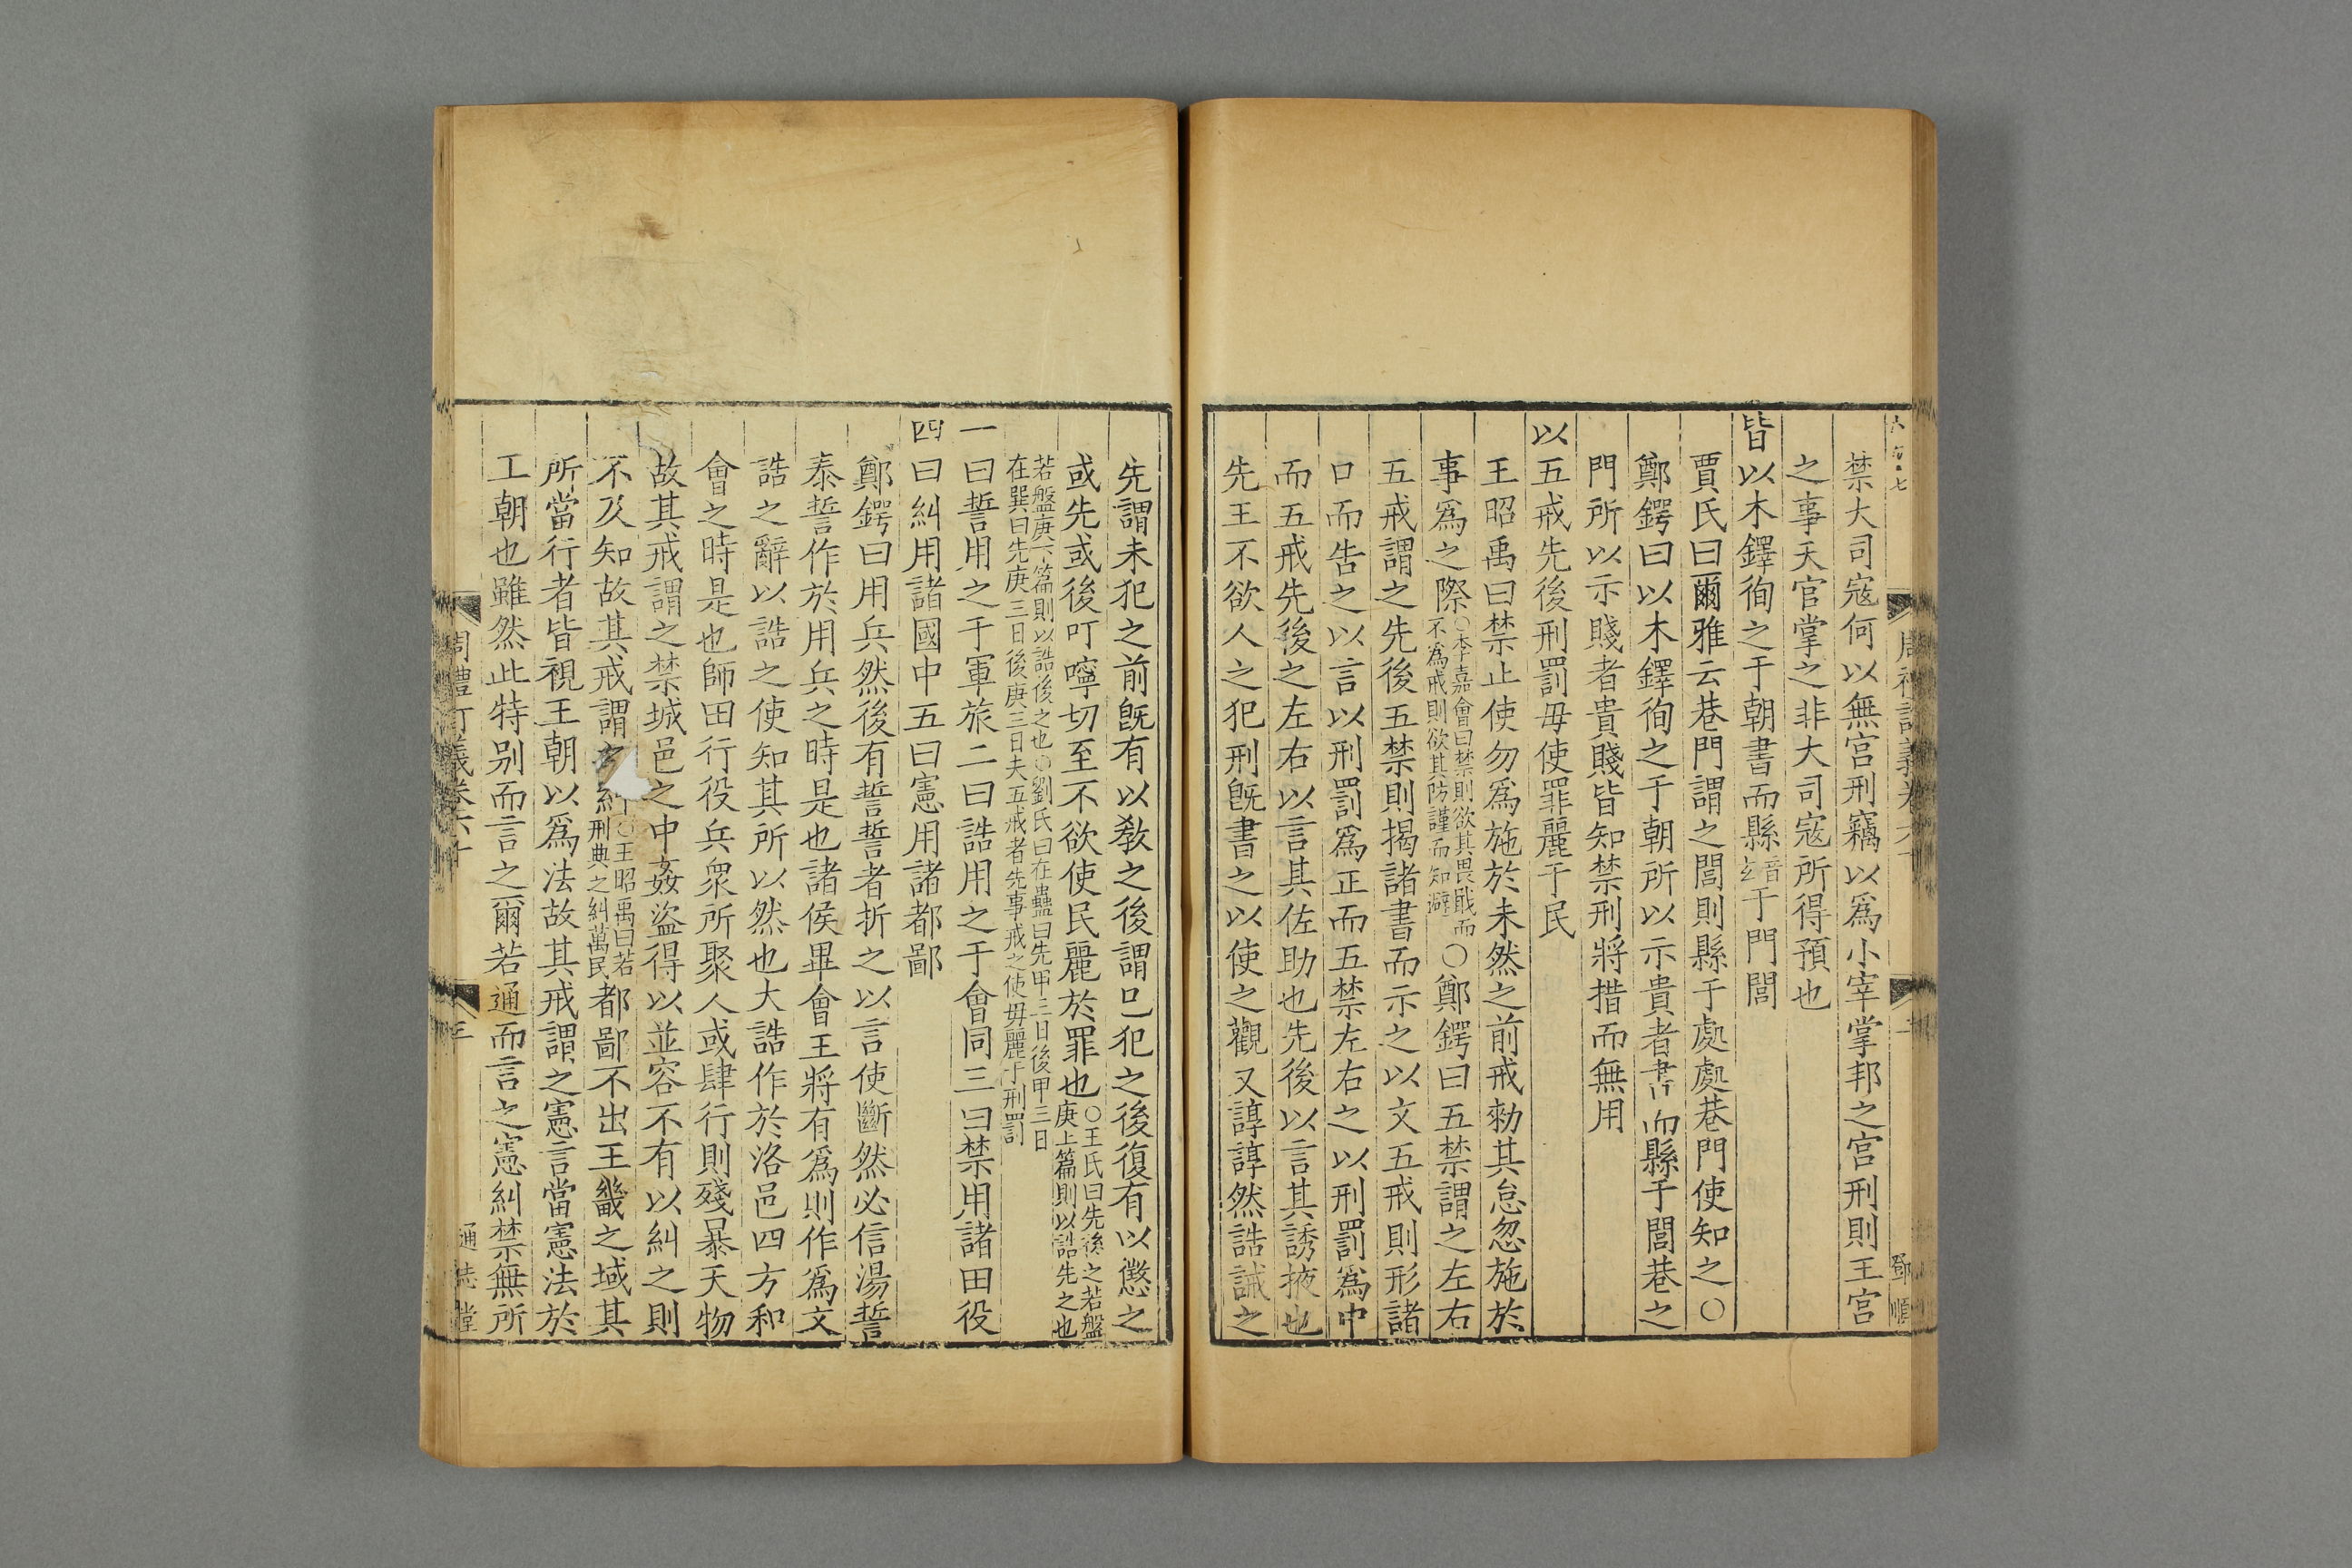 禁大司寇何以無宫刑竊以爲小宰掌邦之宫刑則王宫
之事天官掌之非大司寇所得預也
皆以木鐸徇之于朝書而縣音玄于門閭
賈氏曰爾雅云巷門謂之閭則縣于處處巷門使知之〇
鄭鍔曰以木鐸徇之于朝所以示貴者書而縣于閭巷之
門所以示賤者貴賤皆知禁刑將措而無用
以五戒先後刑罰毋使罪麗于民
王昭禹曰禁止使勿爲施於未然之前戒勑其怠忽施於
事爲之際〇李嘉會曰禁則欲其畏戢而不爲戒則欲其防謹而知避〇鄭鍔曰五禁謂之左右
五戒謂之先後五禁則揭諸書而示之以文五戒則形諸
口而告之以言以刑罰爲正而五禁左右之以刑罰爲中
而五戒先後之左右以言其佐助也先後以言其誘掖也
先王不欲人之犯刑既書之以使之觀又諄諄然誥誡之
鄧順
先謂未犯之前既有以敎之後謂已犯之後復有以懲之
或先或後叮嚀切至不欲使民麗於罪也〇王氏曰先後之若盤庚上篇則以誥先之也
若盤庚下篇則以誥後之也〇劉氏曰在蠱曰先甲三日後甲三日
在巽曰先庚三日後庚三日夫五戒者先事戒之使毋麗于刑罰
一曰誓用之于軍旅二曰誥用之于會同三曰禁用諸田役
四曰糾用諸國中五曰憲用諸都鄙
鄭鍔曰用兵然後有誓誓者折之以言使斷然必信湯誓
泰誓作於用兵之時是也諸侯畢會王將有爲則作爲文
誥之辭以誥之使知其所以然也大誥作於洛邑四方和
會之時是也師田行役兵衆所聚人或肆行則殘暴天物
故其戒謂之禁城邑之中姦盜得以並容不有以糾之則
不及知故其戒謂之糾〇王昭禹曰若刑典之糾萬民都鄙不出王畿之域其
所當行者皆視王朝以爲法故其戒謂之憲言當憲法於
王朝也雖然此特别而言之爾若通而言之憲糾禁無所
周禮訂義卷六十
三
通志堂